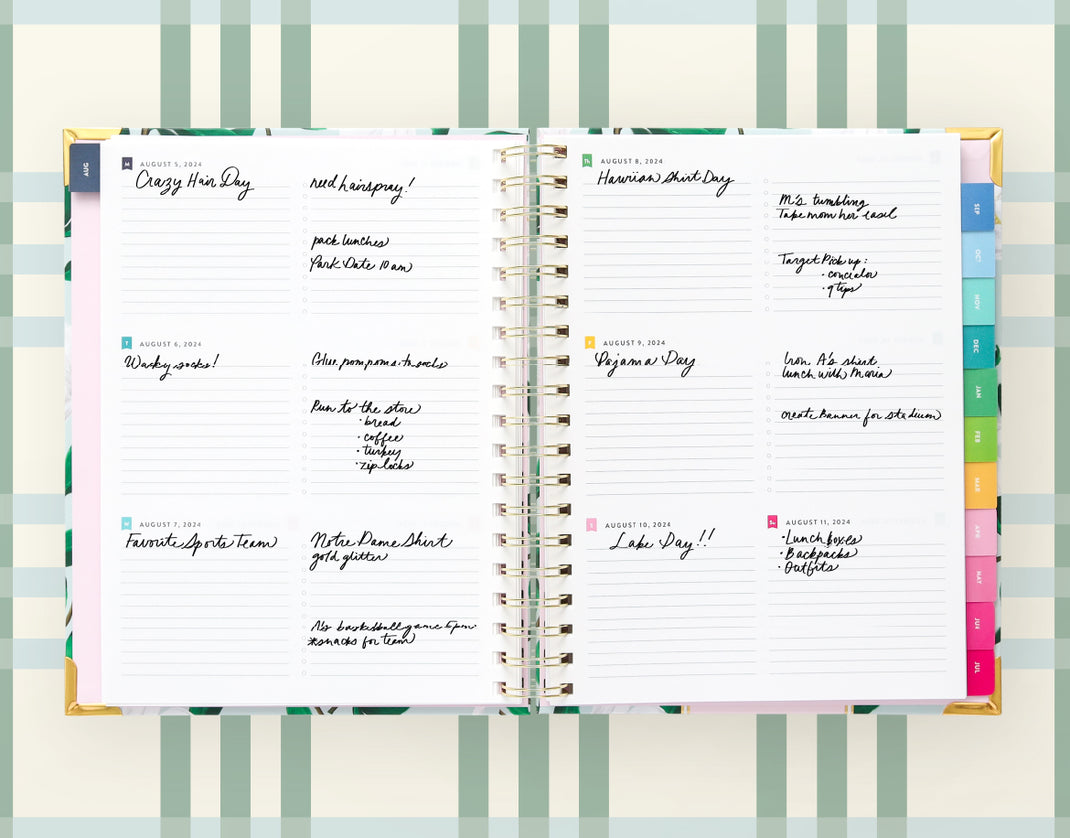 AUG
M AUGUST 5, 2024
Crazy Hair Day
need hairspray!
pack lunches
Park Date 10 am
T AUGUST 6, 2024
Wacky socks!
Glue pompoms to socks
Run to the store
· bread
· coffee
· turkey
· ziplocks
W AUGUST 7, 2024
Favorite Sports Team
Notre Dame Shirt
gold glitter
basketball game 6pm
*snacks for team
Th AUGUST 8, 2024
Hawiian Shirt Day
M's tumbling
Take mom her easel
Target Pick up:
· concealor
· qtips
F AUGUST 9, 2024
Pajama Day
Iron A's shirt
lunch with Maria
create Banner for stadium
S AUGUST 10, 2024
Lake Day!!
Su AUGUST 11, 2024
· Lunch boxes
· Backpacks
· Outfits
SEP
OCT
NOV
DEC
JAN
FEB
MAR
APR
MAY
JUN
JUL